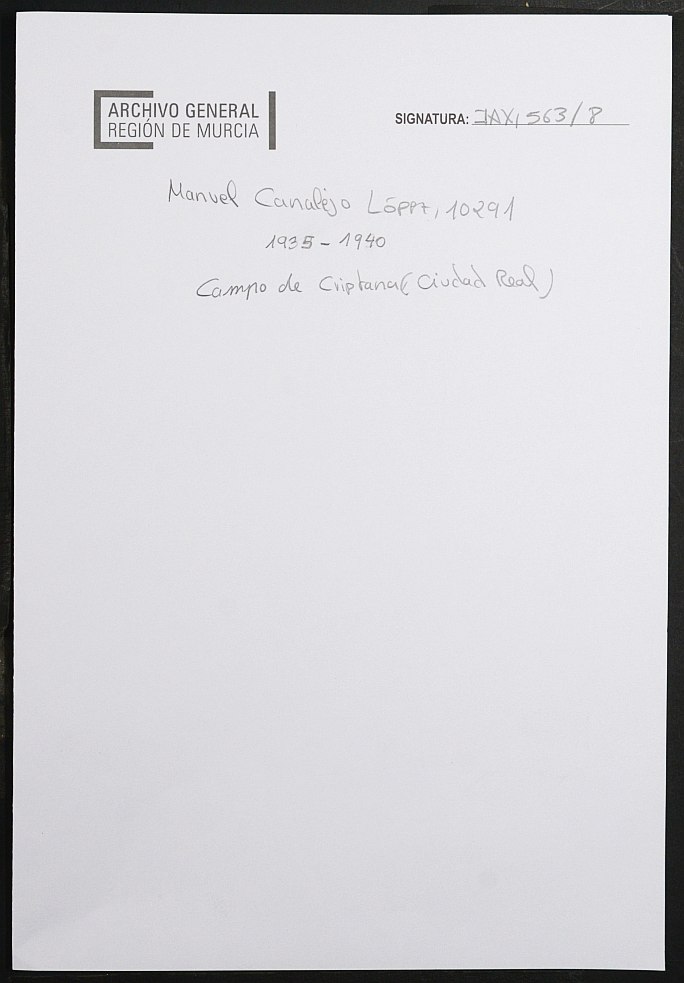 ARCHIVO GENERAL
REGIÓN DE MURCIA
SIGNATURA: JAX, 563/8
Manuel Canalejo López, 10291
1935 - 1940
Campo de Criptana (Ciudad Real)